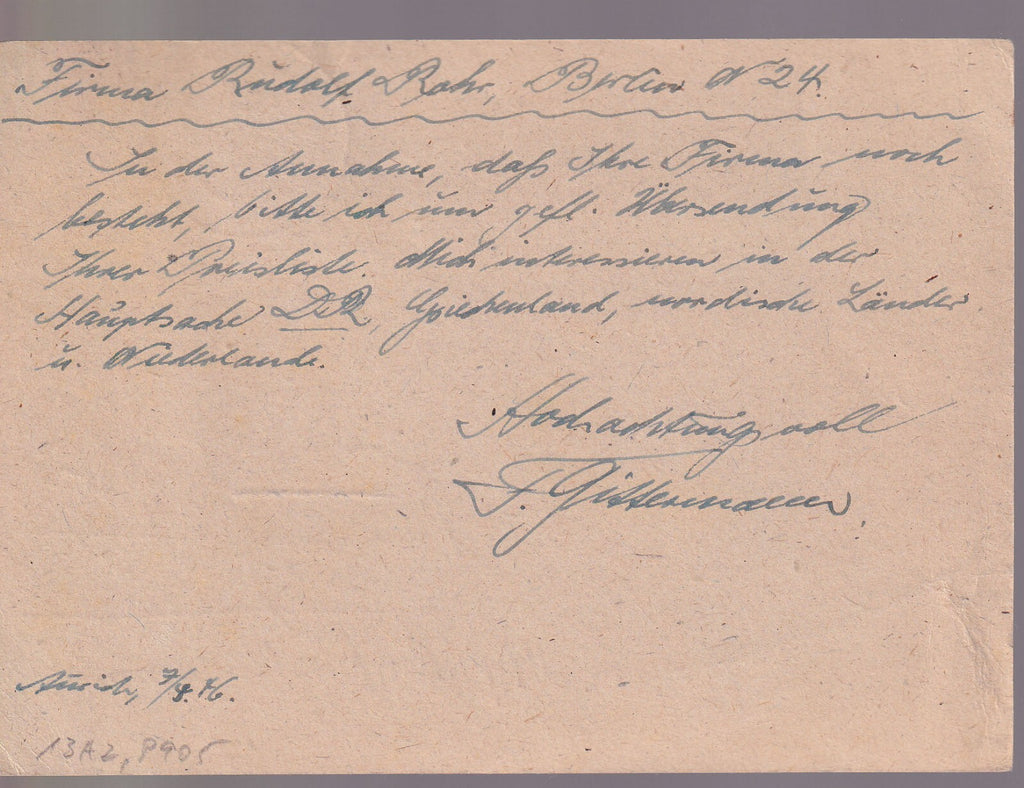 Firma Rudolf Rohr, Berlin N 24.
In der Annahme, daß Ihre Firma noch
besteht, bitte ich um gefl. Übersendung
Ihrer Preisliste. Mich interessieren in der
Hauptsache DR, Griechenland, nordische Länder
u. Niederlande.
Hochachtungsvoll
F. Gittermann
Aurich, 7/8.46.
13A2, P905